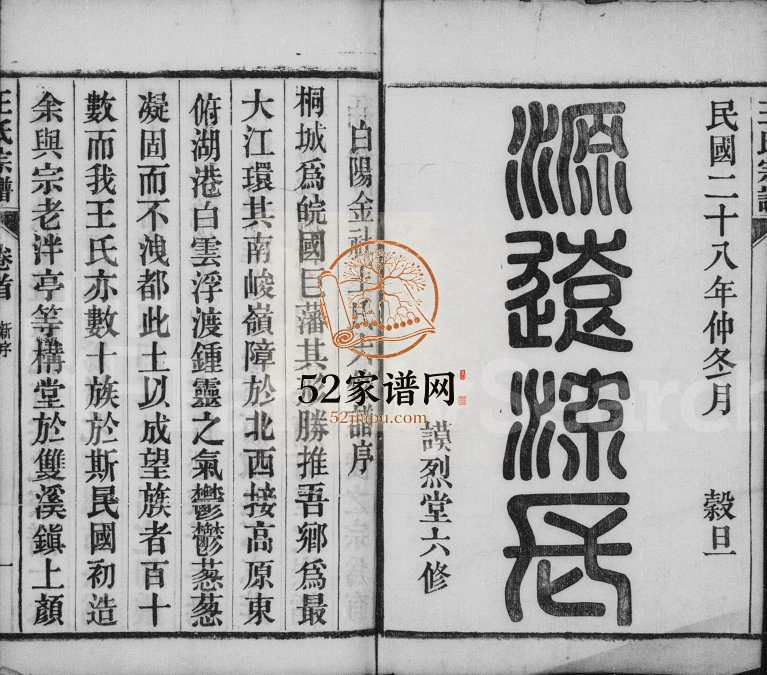 王氏宗譜
民國二十八年仲冬月 穀旦
源遠流長
謨烈堂六修
白陽金社王氏六修譜序
桐城爲皖國巨藩其形勝推吾鄉爲最
大江環其南峻嶺障於北西接高原東
俯湖港白雲浮渡鍾靈之氣鬱鬱葱葱
凝固而不洩都此土以成望族者百十
數而我王氏亦數十族於斯民國初造
余與宗老泮亭等構堂於雙溪鎮上顏
王氏宗譜 卷首 新序 一
52家谱网
52jiapu.com